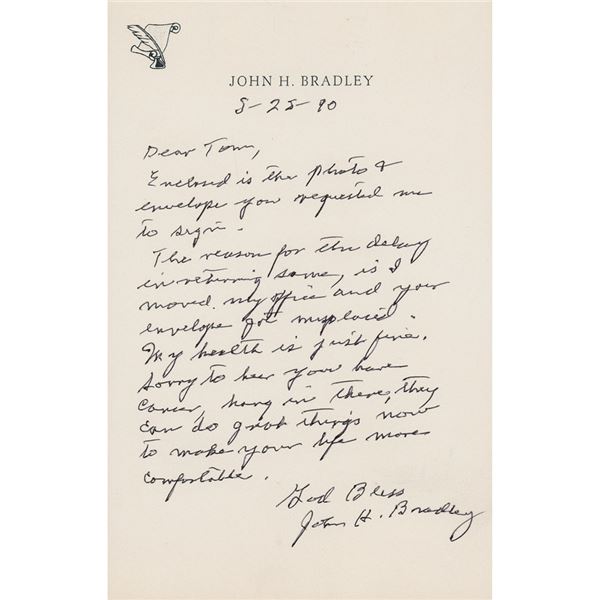 JOHN H. BRADLEY
5-25-90
Dear Tom,
Enclosed is the photo &
envelope you requested me
to sign.
The reason for the delay
in returning same, is I
moved my office and your
envelope got misplaced.
My health is just fine.
Sorry to hear your have
cancer, hang in there, they
can do great things now
to make your life more
comfortable.
God Bless
John H. Bradley